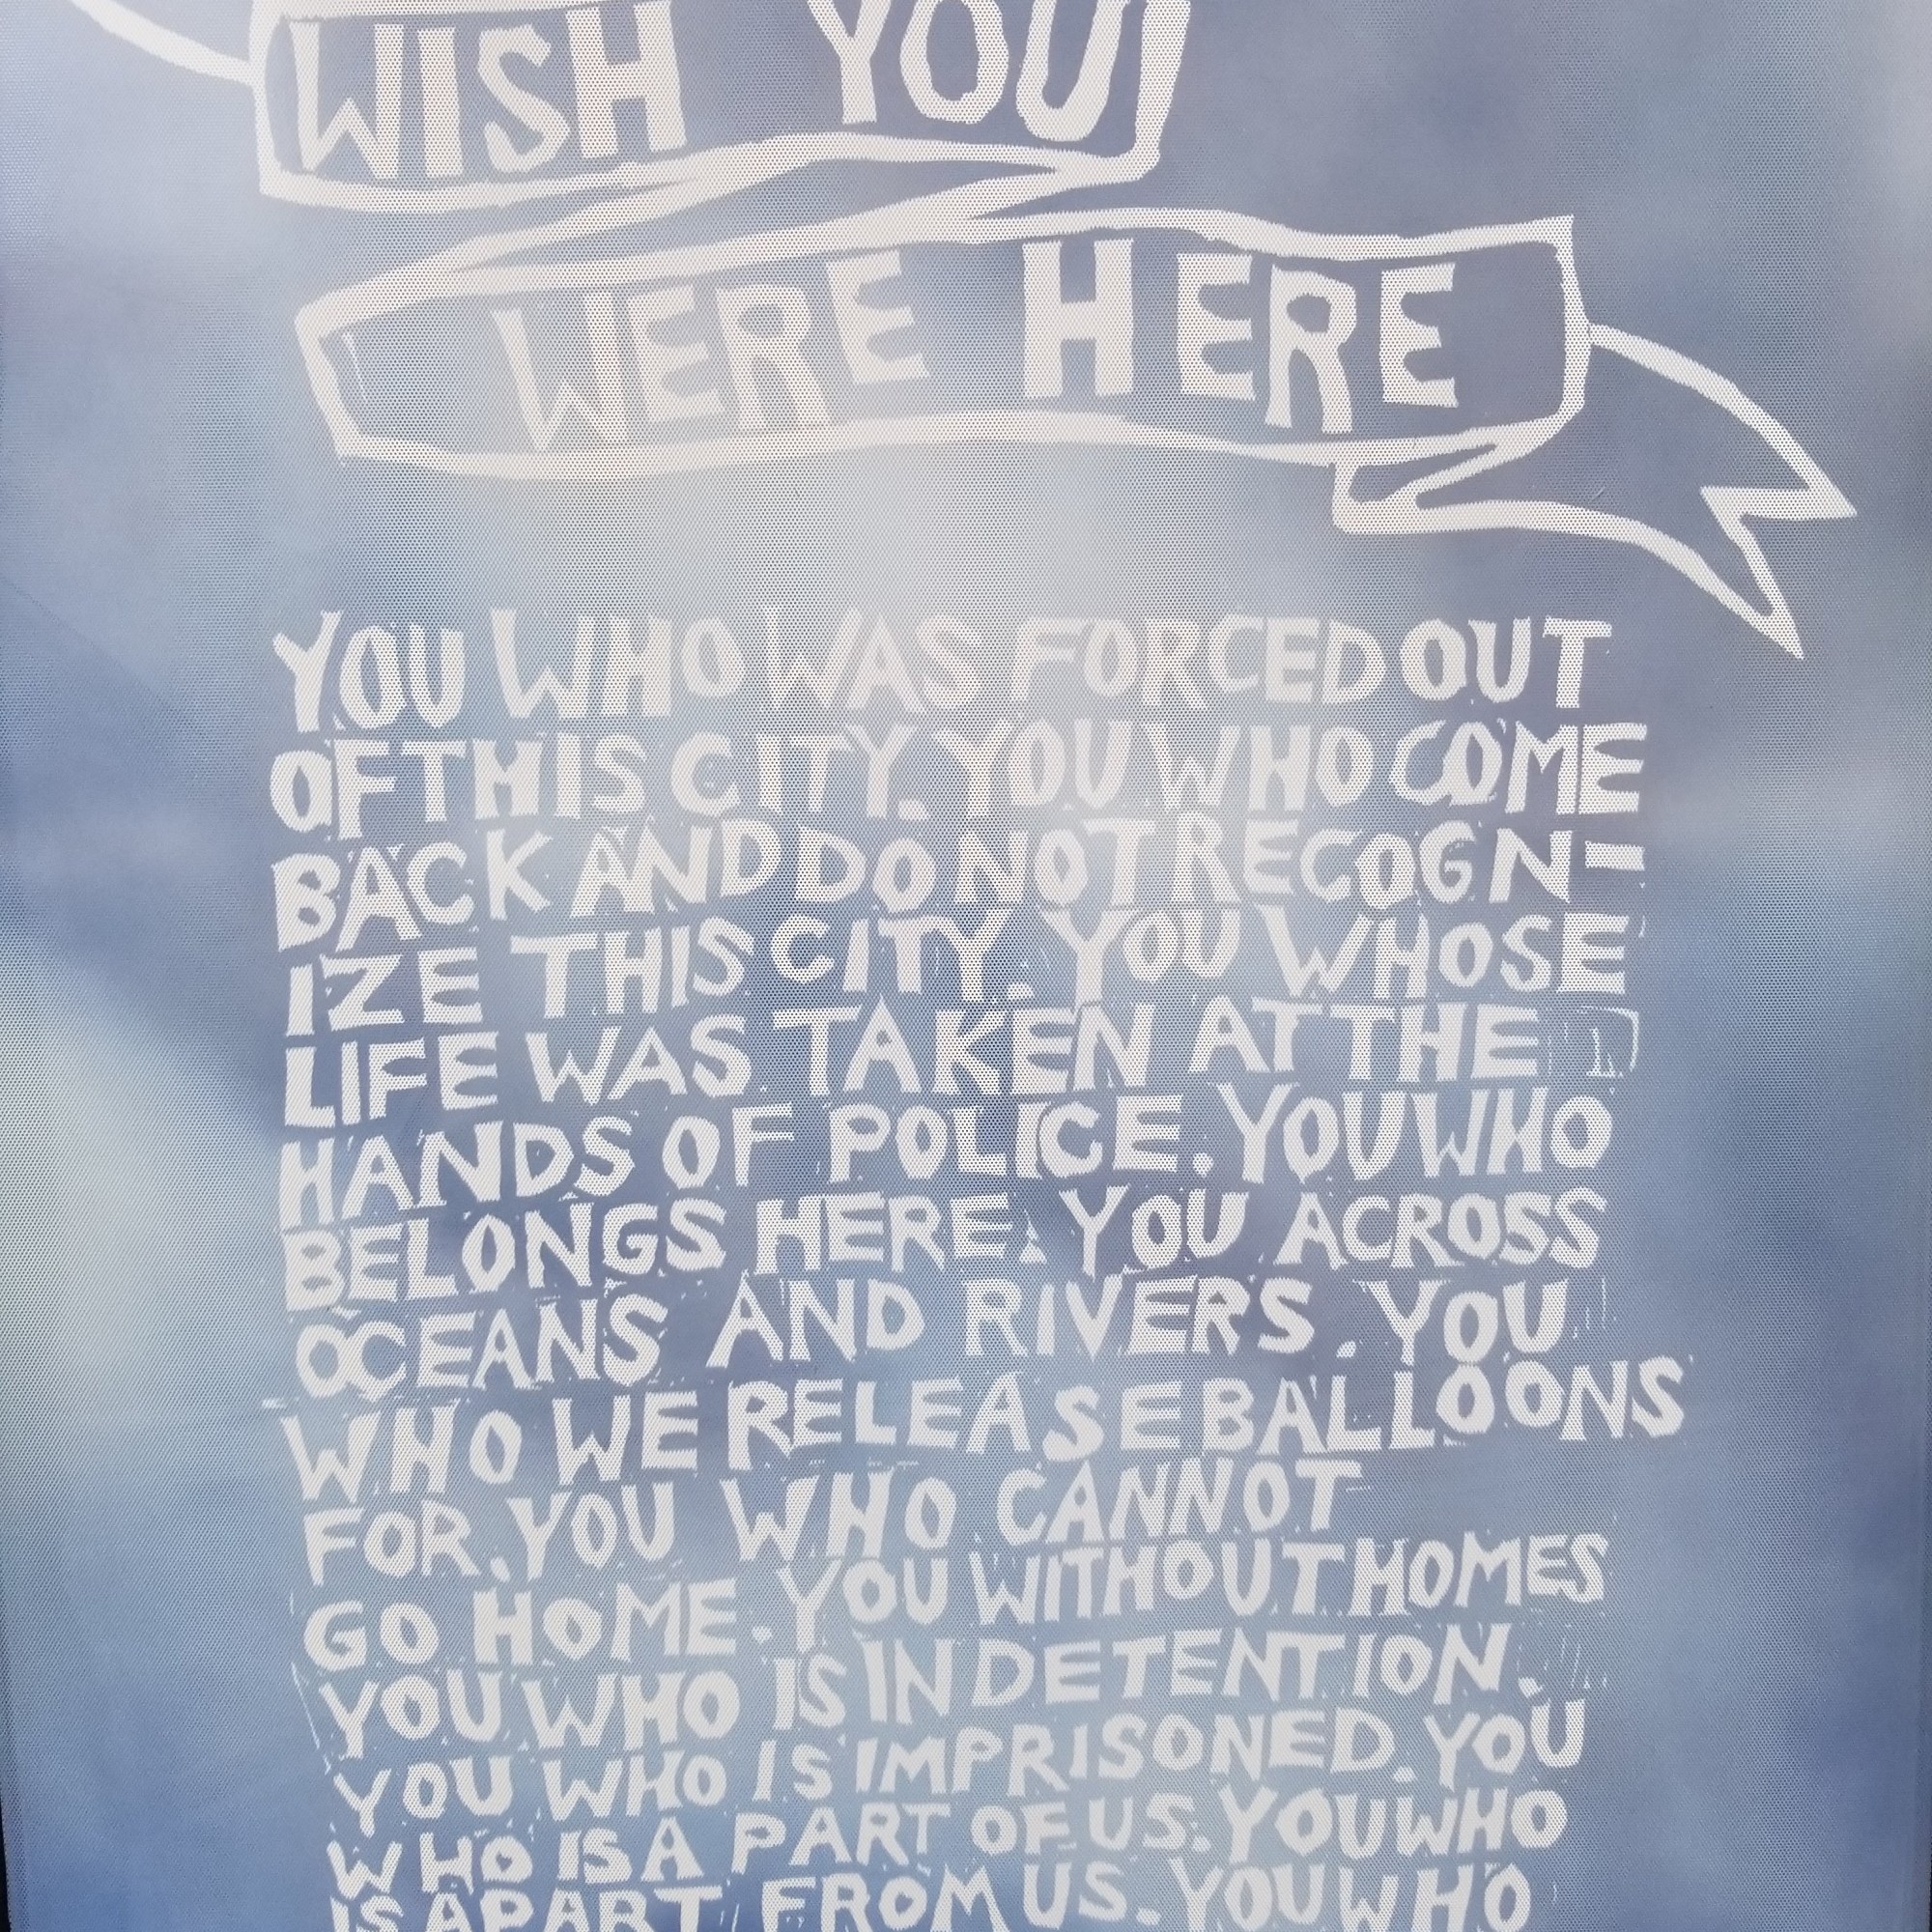 WISH YOU
WERE HERE
YOU WHO WAS FORCED OUT
OF THIS CITY. YOU WHO COME
BACK AND DO NOT RECOGN-
IZE THIS CITY. YOU WHOSE
LIFE WAS TAKEN AT THE
HANDS OF POLICE. YOU WHO
BELONGS HERE. YOU ACROSS
OCEANS AND RIVERS. YOU
WHO WE RELEASE BALLOONS
FOR. YOU WHO CANNOT
GO HOME. YOU WITHOUT HOMES
YOU WHO IS IN DETENTION.
YOU WHO IS IMPRISONED. YOU
WHO IS A PART OF US. YOU WHO
IS APART FROM US. YOU WHO